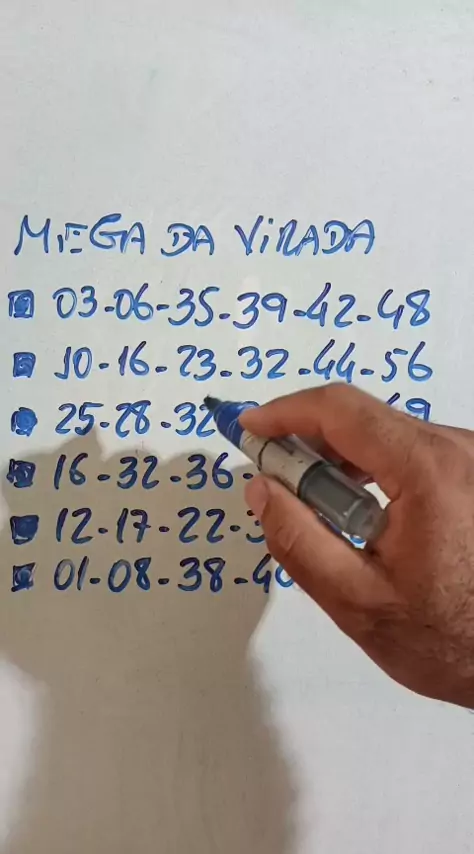 MEGA DA VIRADA
03-06-35-39-42-48
10-16-23-32-44-56
25-28-32
16-32-36-
12-17-22-
01-08-38-40